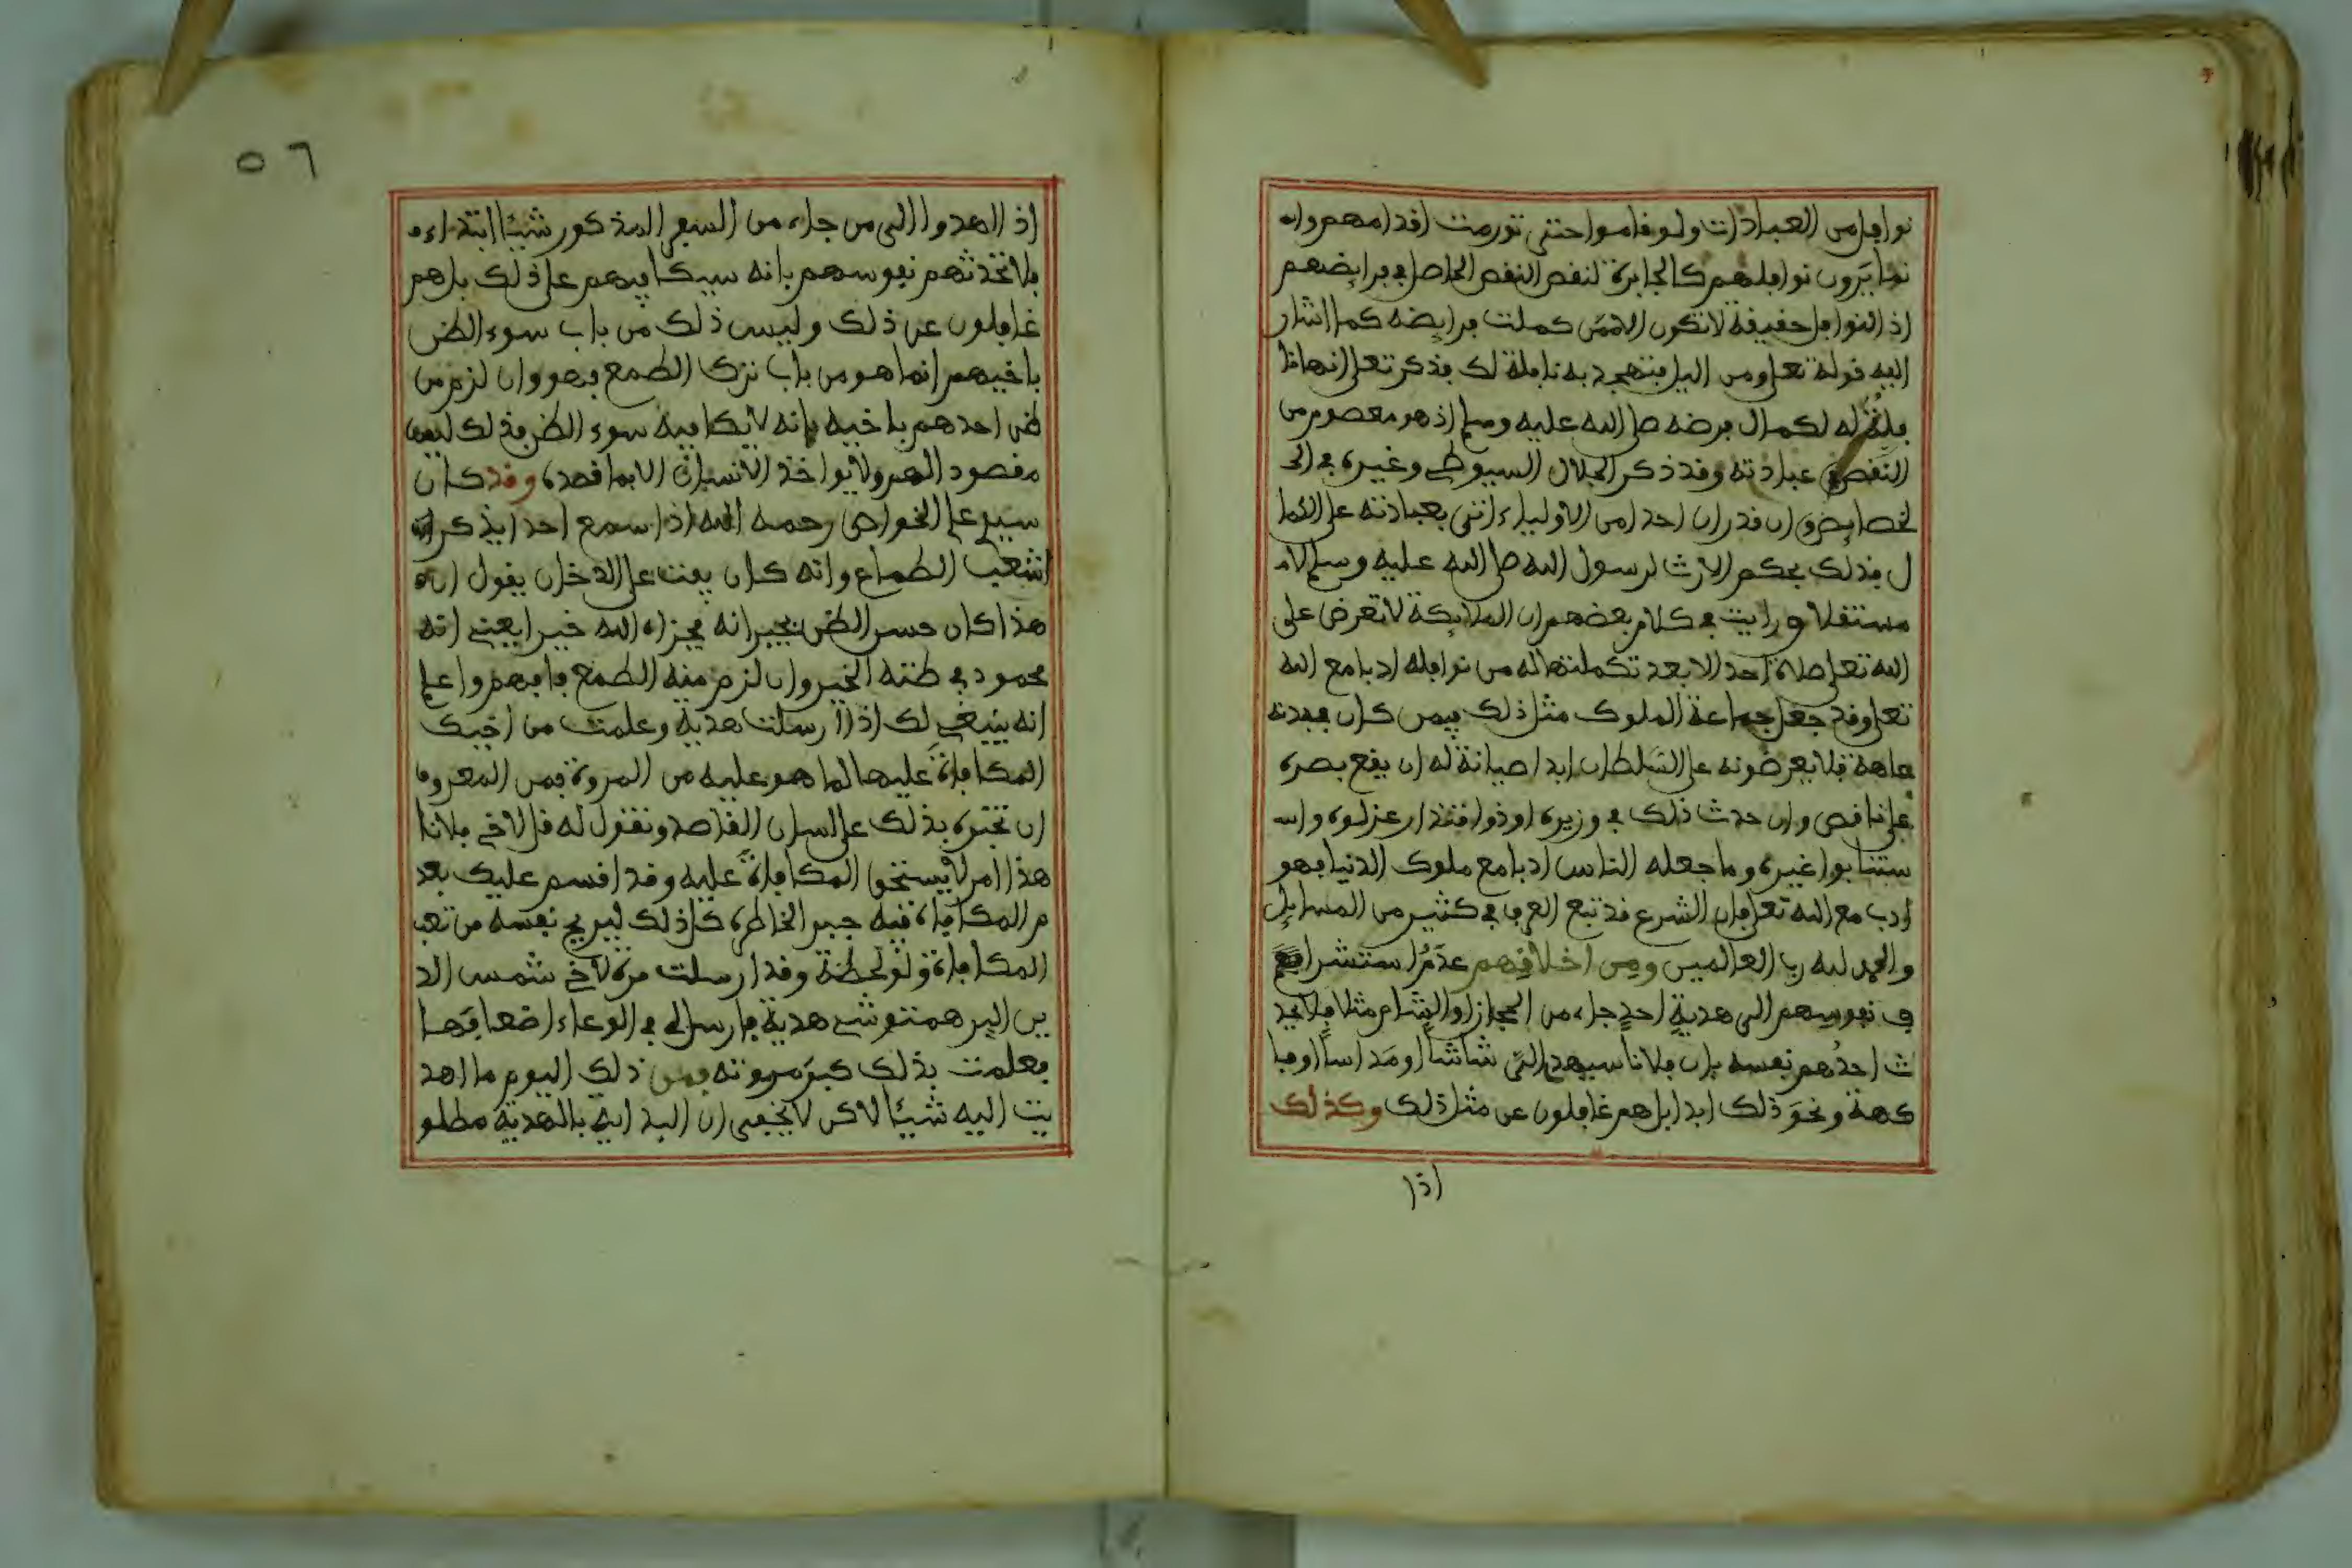 نوافل من العبادات ولو قاموا حتى تورمت اقدامهم وانه
نما يَرَون نوافلهم كالجابرة لنقص النقص الحاصل في فرايضهم
اذ النوافل حقيقة لا تكون الا ممن كملت فرايضه كما اشار
اليه قوله تعلى ومن اليل فتهجد به نافلة لك فذكر تعلى انها نا
فلة له لكمال فرضه صلى الله عليه وسلم اذ هو معصوم من
النقص في عبادته وقد ذكر الجلال السيوطي وغيره في ال
لخصايص وان قدر ان احدا من الاولياء اتى بعبادته على الكما
ل فذلك بحكم الارث لرسول الله صلى الله عليه وسلم لا
مستقلا ورايت في كلام بعضهم ان الملايكة لا تعرض على
الله تعلى صلاة احد الا بعد تكملتها له من نوافله ادبا مع الله
تعلى وقد جعل جماعة الملوك مثل ذلك فيمن كان في بدنه
عاهة فلا يعرضونه على السلطان ابدا صيانة له ان يقع بصره
على ناقص وان حدث ذلك في وزيره او ذو اقتدار عزلوه واس
ستنابوا غيره وما جعله الناس ادبا مع ملوك الدنيا فهو
ادب مع الله تعلى فان الشرع قد تبع العرف في كثير من المسايل
والحمد لله رب العالمين ومِن اخلاقِهم عدَمُ استشراف
ف نفوسهم الى هدية احدٍ جاء من الحجاز او الشام مثلا فلا يحد
ث احدُهم نفسه بان فلانا سيهدى الىّ شاشاً او مَداساً او فا
كهة ونحوَ ذلك ابدا بل هم غافلون عن مثل ذلك وكذلك
اذا
٥٦
اذ اهدوا الى من جاء من السفر المذكور شيئا ابتداء
فلا تحدثهم نفوسهم بانه سيكافيهم على ذلك بل هم
غافلون عن ذلك وليس ذلك من باب سوء الظن
باخيهم انما هو من باب ترك الطمع فهو وان لزم من
ظن احدهم باخيه بانه لا يكافيه سوء الظن فذلك ليس
مقصود الهم ولا يواخذ الانسان الا بما قصده وقد كان
سيدي على الخواص رحمه الله اذا سمع احدا يذكر ان
اشعب الطماع وانه كان يفت على الدخان يقول ان
هذا كان حسن الظن بجيرانه فجزاه الله خيرا يعنى انه
محمود في ظنه الخير وان لزم منه الطمع فافهم واعلم
انه ينبغي لك اذا ارسلت هدية وعلمت من اخيك
المكافاة عليها لما هو عليه من المروة فمن المعروف
ان تخبره بذلك على لسان القاصد وتقول له قل لاخي فلانا
هذا امر لا يستحق المكافاة عليه وقد اقسم عليك بعد
م المكافاة فيه جبر الخاطره كل ذلك ليريح نفسه من تعب
المكافاة ولو لحظة وقد ارسلت مرة لاخي شمس الد
ين البرهمتوشي هدية فارسل لي في الوعاء اضعافها
فعلمت بذلك كبَر مروته فمن ذلك اليوم ما اهد
يت اليه شيئا لاكن لا يخفى ان البداية بالهدية مطلو